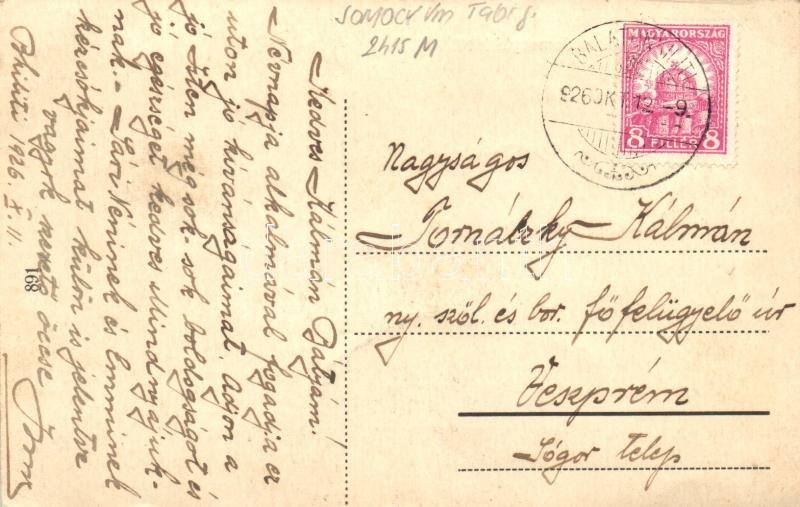 SOMOGY Vm Tabi j.
2415 M
MAGYARORSZÁG
8 FILLÉR 8
926 OKT 12 -9.
Kedves Kálmán Bátyám!
Nevnapja alkalmával fogadja ez
uton jó kivánságaimat. Adjon a
jó Isten még sok-sok boldogságot és
jó egészséget kedves Mindnyájuk-
nak.- Sári Néninek és Emminek
kézcsókjaimat külön is jelentve
vagyok szerető öccse
1926. X. 11.
168
Nagyságos
Tornátzky Kálmán
ny. szöl. és bor. főfelügyelő úr
Veszprém
Jógor telep